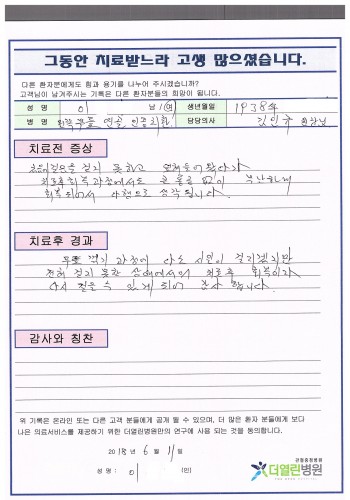 그동안 치료받느라 고생 많으셨습니다.
다른 환자분에게도 힘과 용기를 나누어 주시겠습니까?
고객님이 남겨주시는 기록은 다른 환자분들의 희망이 됩니다.
성 명 이 남 / 여 생년월일 1938년
병 명 왼쪽 무릎 연골 인공치환 담당의사 김인규 원장님
치료전 증상
걷지 못하고
치료후 회복과정에서도 큰 불편 없이
회복되어서 다행으로 생각됩니다.
치료후 경과
무릎 꺾기 과정에 다소 시일이 걸리겠지만
전혀 걷지 못한 상태에서의 치료후 회복이라
다시 걸을 수 있게 되어 감사합니다.
감사와 칭찬
위 기록은 온라인 또는 다른 고객 분들에게 공개 될 수 있으며, 더 많은 환자 분들에게 보다
나은 의료서비스를 제공하기 위한 더열린병원만의 연구에 사용 되는 것을 동의합니다.
2018년 6월 11일
성 명 : 이 (인)
관절중점병원
더열린병원
THE OPEN HOSPITAL